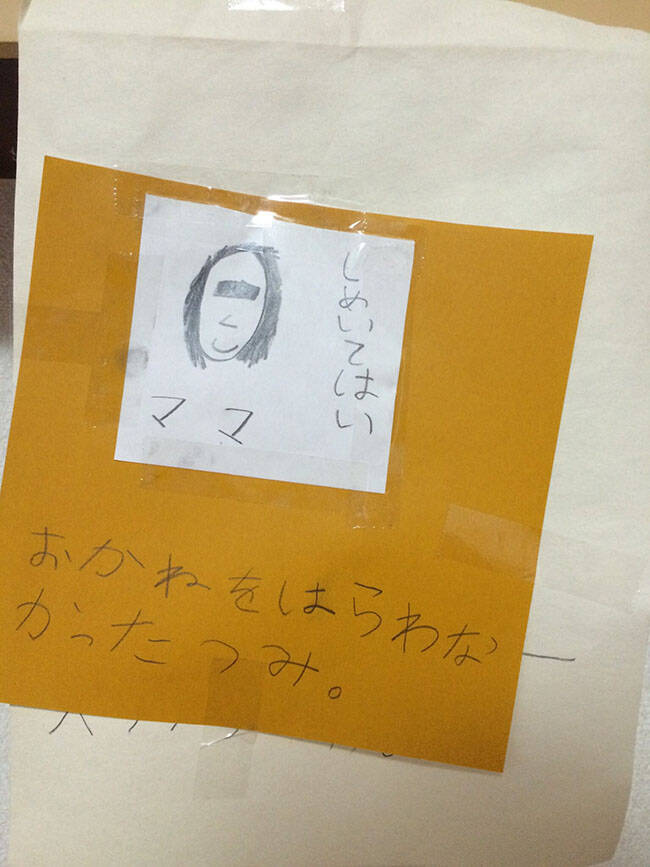 しめいてはい
ママ
おかねをはらわなー
かったつみ。